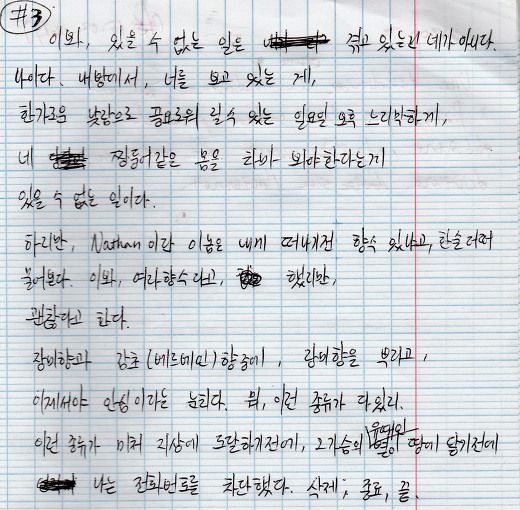 #3
이봐, 있을 수 없는 일은 겪고 있는건 네가 아니다.
나이다. 내방에서, 너를 보고 있는 게,
한가로운 낮잠으로 풍요로워 질수 있는 일요일 오후 느리막하게,
네 찡둥어같은 몸을 쳐다 봐야한다는게
있을 수 없는 일이다.
하지만, Nathan이란 이놈은 내게 떠나기전 향수 있냐고, 한술더떠
물어본다. 이봐, 여자향수라고, 했지만,
괜찮다고 한다.
장미향과 감초(베르메인)향중에, 장미향을 뿌리고,
이제서야 안심이라는 눈치다. 뭐, 이런 종류가 다있지.
이런 종류가 미처 지상에 도달하기전에, 그가슴의 땅에 닿기전에
나는 전화번호를 차단했다. 삭제, 종료, 끝.